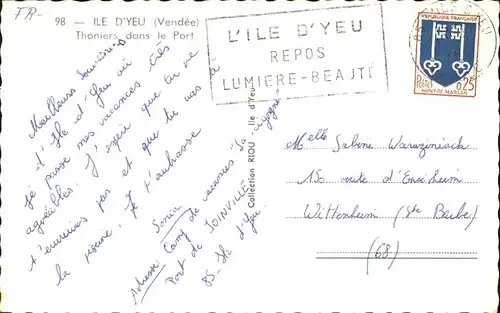 FR-
98 — ILE D'YEU (Vendée)
Thoniers dans le Port
L'ILE D'YEU
REPOS
LUMIERE-BEAUTÉ
REPUBLIQUE FRANÇAISE
Postes
0,25
MONT-DE-MARSAN
Meilleurs Souvenirs
d'Ile d'Yeu où
je passe mes vacances très
agréables. J'espère que tu ne
t'ennuies pas et que tu vas à
la piscine. Je t'embrasse
Sonia
Adresse Camp de vacances
Port de JOINVILLE
85 - Ile d'Yeu.
Collection RIOU - Ile d'Yeu
Melle Sabine
150 route d'Ensisheim
Wittenheim (Ste Barbe)
(68)